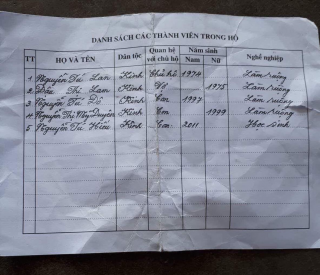 DANH SÁCH CÁC THÀNH VIÊN TRONG HỘ
TT HỌ VÀ TÊN Dân tộc Quan hệ với chủ hộ Năm sinh Nam Nữ Nghề nghiệp
1 Nguyễn Tú Lan Kinh Chủ hộ 1974 Làm ruộng
2 Thị Lam Kinh Vợ 1975 Làm ruộng
3 Nguyễn Tú Kinh Con 1997 Làm ruộng
4 Nguyễn Thị Duyên Kinh Con 1999 Làm ruộng
5 Nguyễn Tú Hiếu Kinh Con 2011 Học sinh